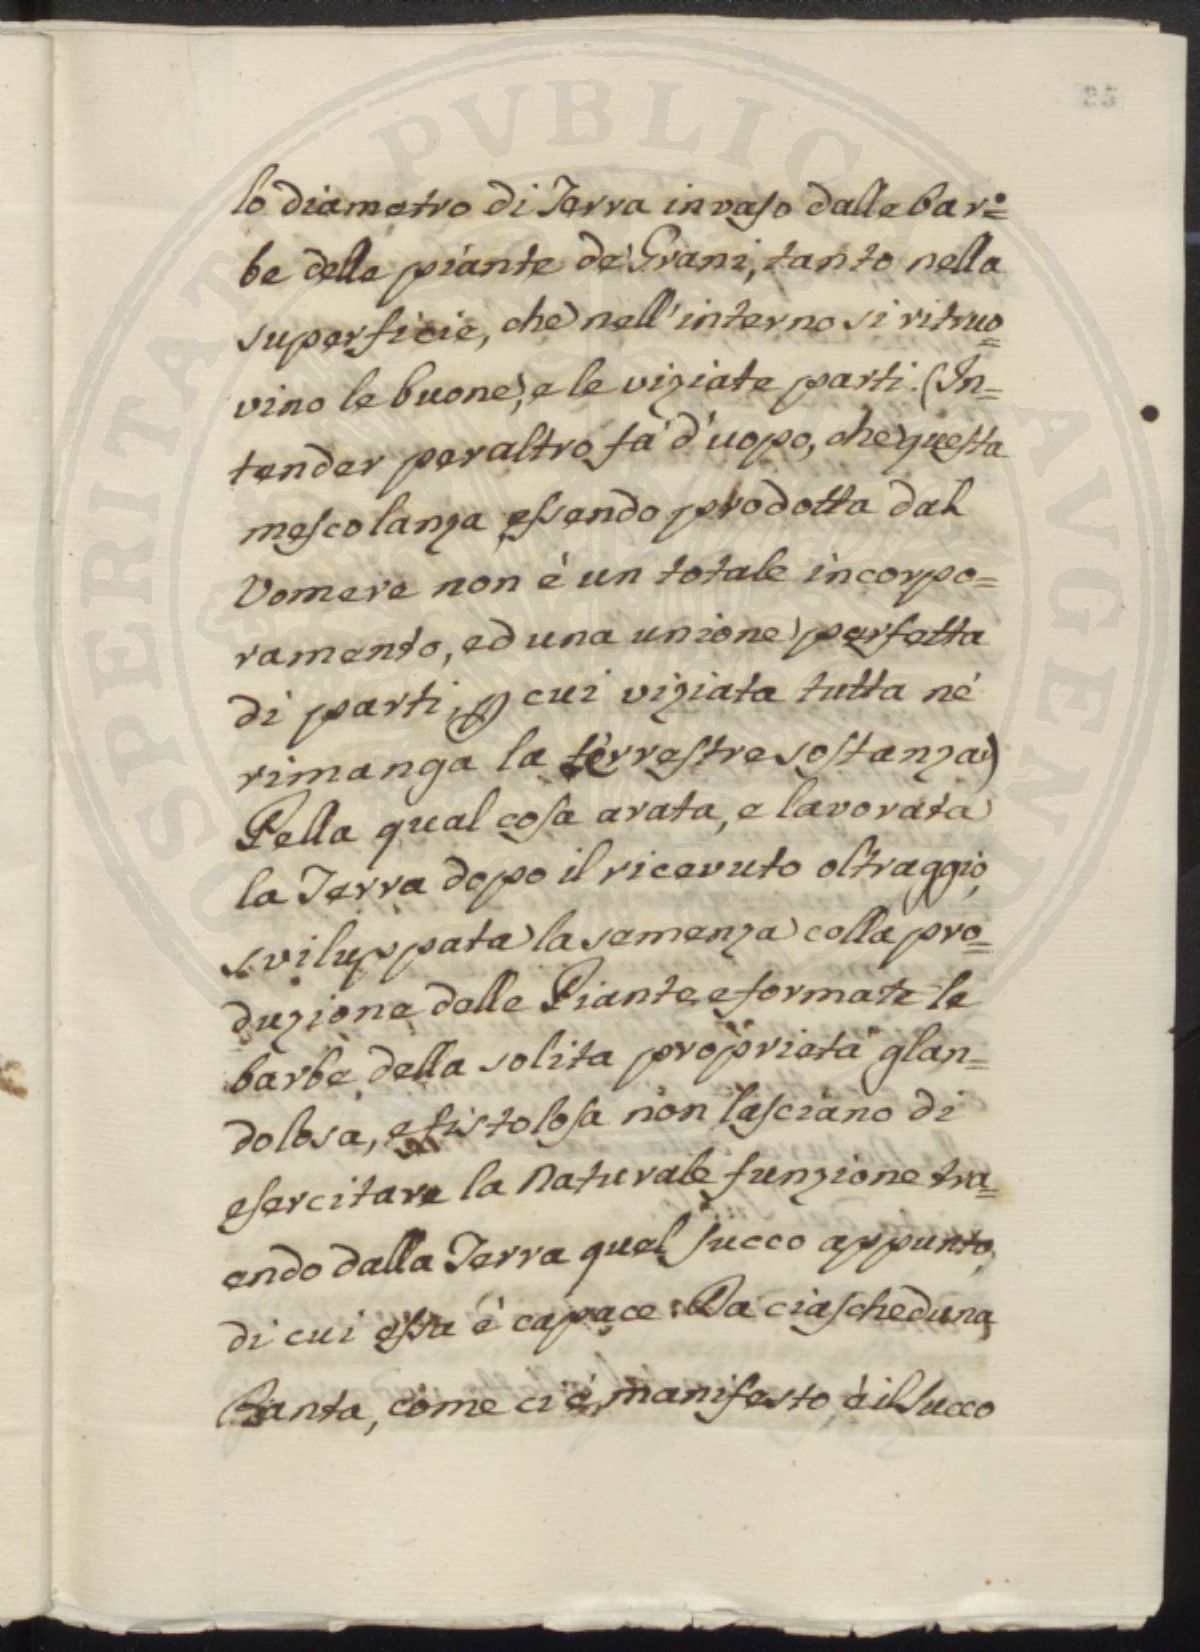 lo diametro di Terra invaso dalle bar=
be delle piante de' Grani, tanto nella
superficie, che nell'interno si ritruo=
vino le buone, e le viziate parti. (In=
tender peraltro fà d'uopo, che questa
mescolanza essendo prodotta dal
Vomere non è un totale incorpo=
ramento, ed una unione perfetta
di parti, ꝑ cui viziata tutta né
rimanga la terrestre sostanza)
Pella qual cosa arata, e lavorata
la Terra dopo il ricevuto oltraggio,
sviluppata la semenza colla pro=
duzione delle Piante, e formate le
barbe della solita proprietà glan=
dolosa, e fistolosa non lasciano di
esercitare la naturale funzione tra=
endo dalla Terra quel succo appunto,
di cui essa è capace. Da ciascheduna
Pianta, come ci è manifesto, è il succo
SPERITATI PVBLIC AVGEND